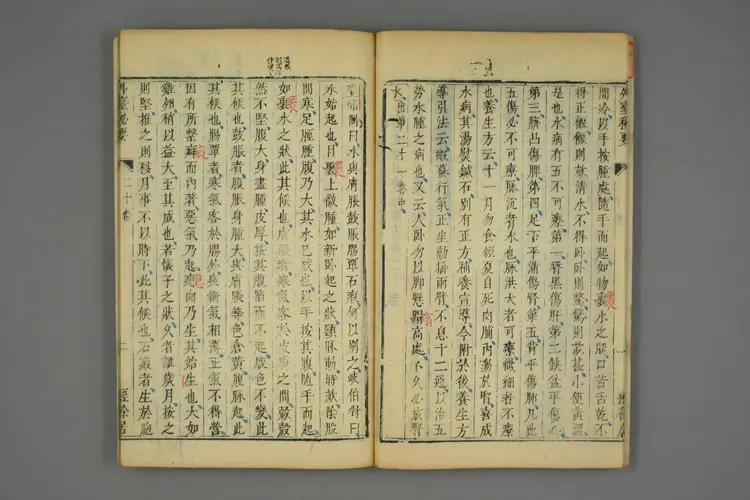 間冷以手按腫處隨手而起如物裹水之狀口苦舌乾不
得正偃偃則欬清水不得臥臥則驚驚則欬甚小便黃澀
是也水病有五不可療第一唇黑傷肝第二缺盆平傷心
第三臍凸傷脾第四足下平滿傷腎第五背平傷肺凡此
五傷必不可療脉沉者水也脉洪大者可療微細者不療
也養生方云十一月勿食經夏自死肉脯內動於腎喜成
水病其湯熨鍼石別有正方補養宣導今附於後養生方
導引法云蝦蟇行氣正坐動搖兩臂不息十二通以治五
勞水腫之病也又云人臥勿以脚懸蹋高處不久必成腎
水出第二十一卷中
黃帝問曰水與膚脹鼓脹腸覃石瘕何以別之岐伯對曰
水始起也目裹上微腫如新臥起之狀頸脉動時欬陰股
間寒足脛腫腹乃大其水已成也以手按其腹隨手而起
如裹水之狀此其候也膚脹者寒氣客於皮膚之間殼殼
然不堅腹大身盡腫皮厚按其腹陷而不起腹色不變此
其候也鼓脹者腹脹身腫大與膚脹等色蒼黃腹脉起此
其候也腸覃者寒氣客於腸外與衛氣相薄正氣不得營
因有所繫癖而內著惡氣乃起瘜肉乃生其始生也大如
雞卵稍以益大至其成也若懷子之狀久者離歲月按之
則堅推之則移月事不以時下此其候也石瘕者生於胞
外臺秘要
二十卷
二
經餘居